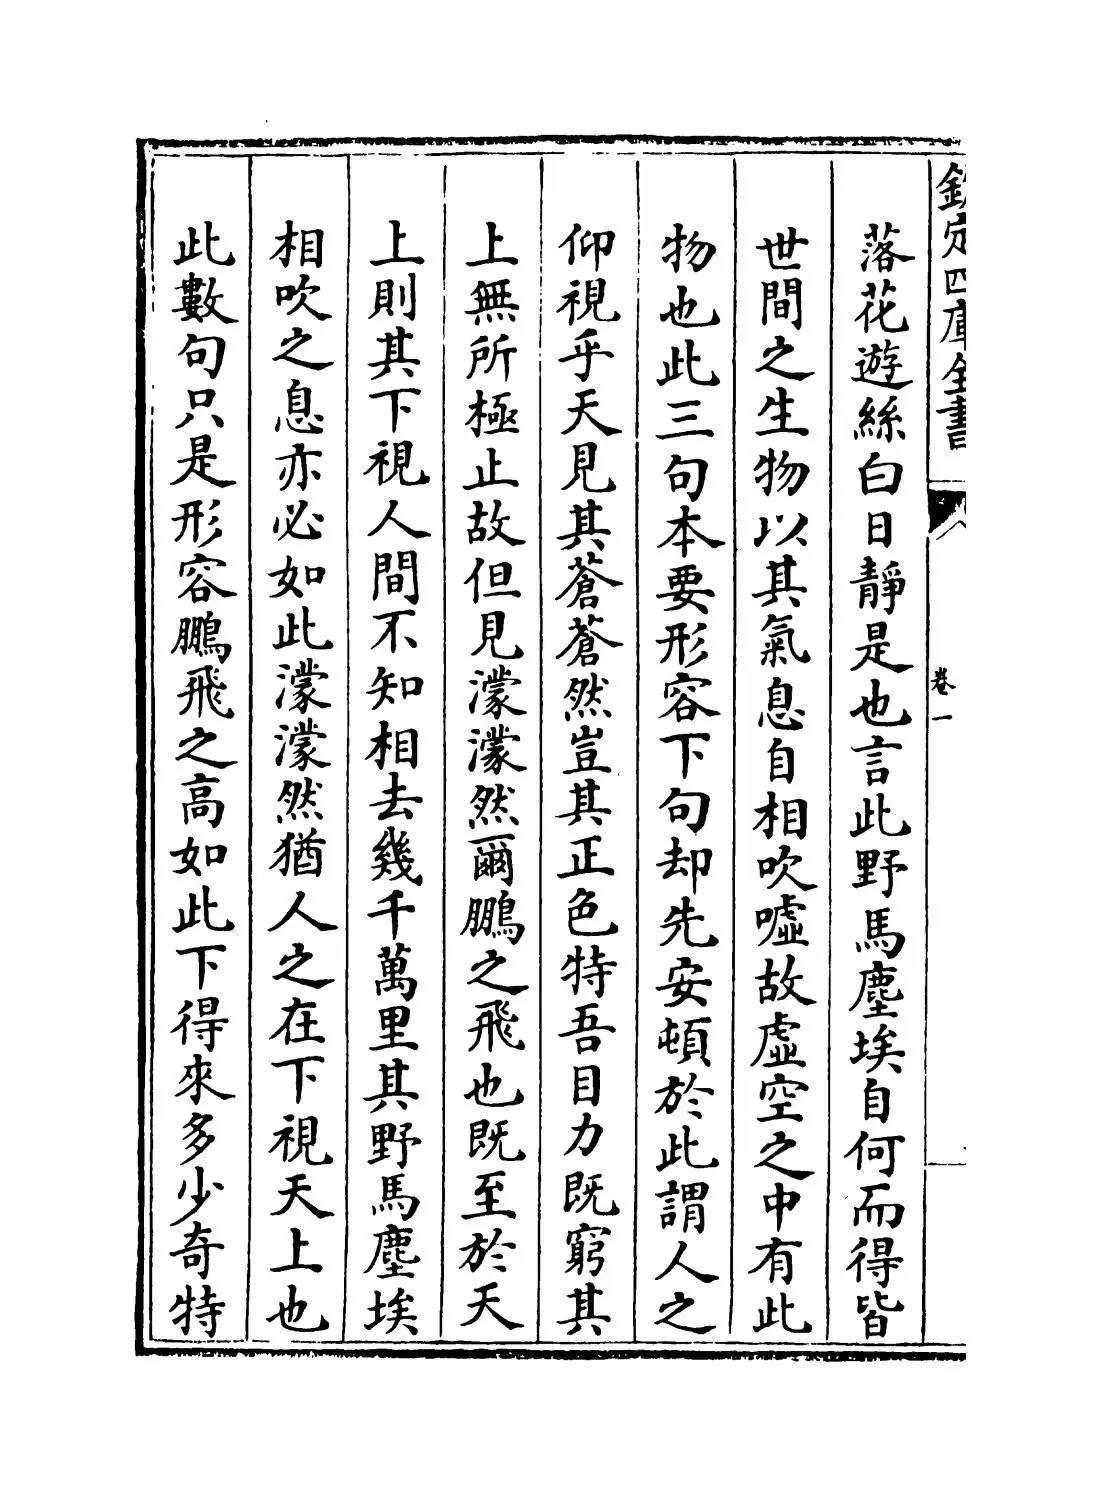 欽定四庫全書
卷一
落花遊絲白日靜是也言此野馬塵埃自何而得皆
世間之生物以其氣息自相吹噓故虛空之中有此
物也此三句本要形容下句却先安頓於此謂人之
仰視乎天見其蒼蒼然豈其正色特吾目力既窮其
上無所極止故但見濛濛然爾鵬之飛也既至於天
上則其下視人間不知相去幾千萬里其野馬塵埃
相吹之息亦必如此濛濛然猶人之在下視天上也
此數句只是形容鵬飛之高如此下得來多少奇特